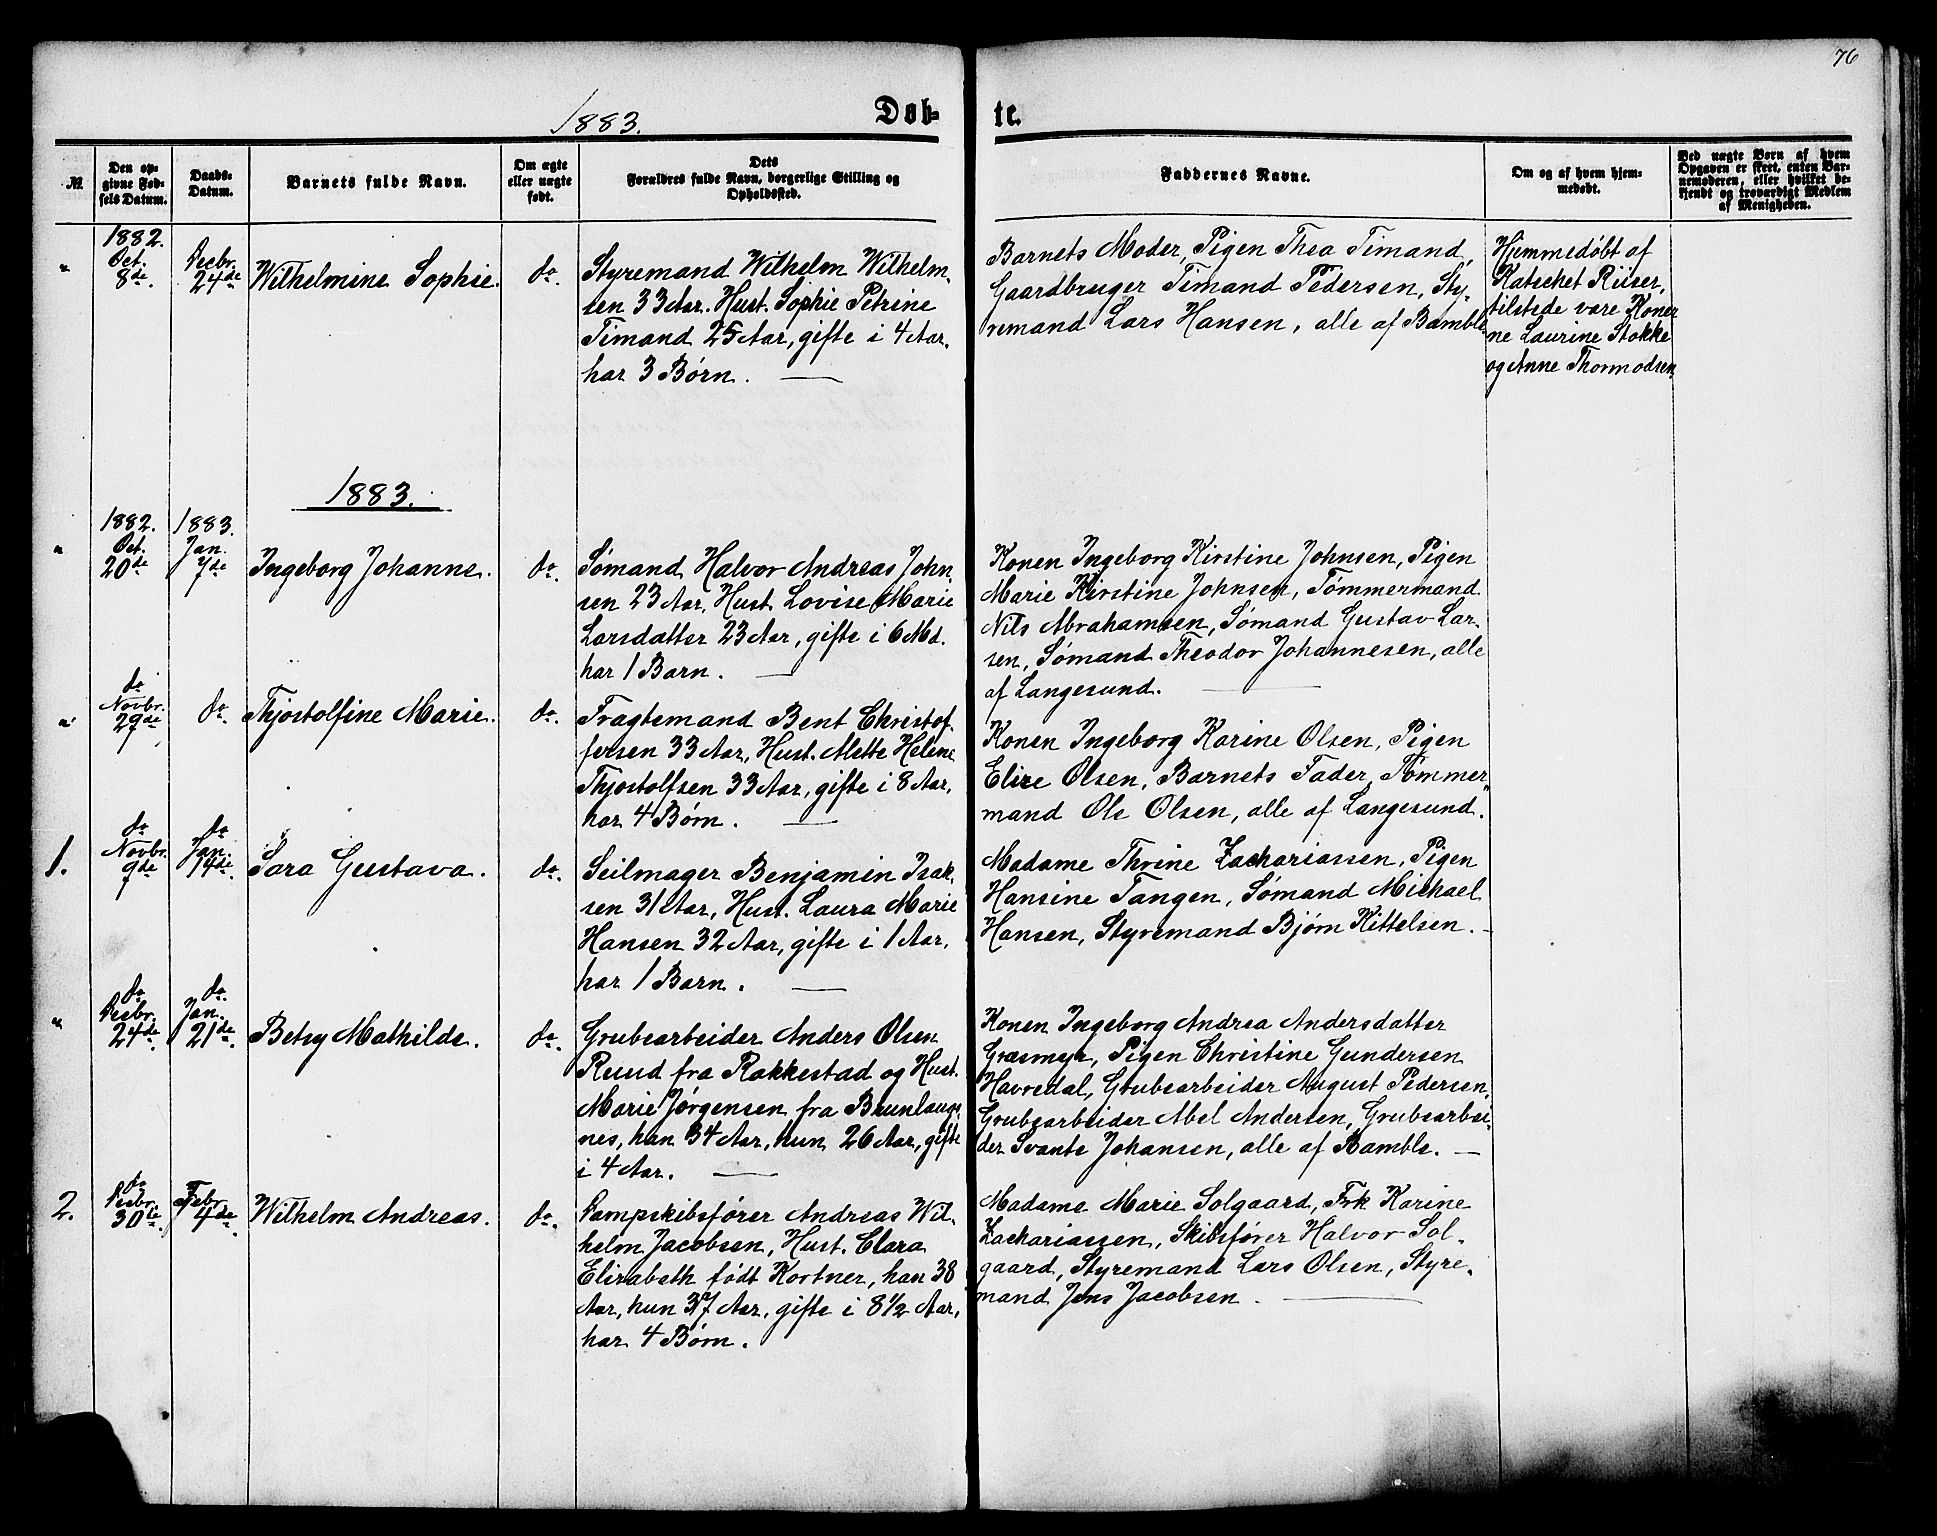 76
1883.
Døb-
te.
№
Den op-
givne Fød-
sels Datum.
Daabs-
Datum.
Barnets fulde Navn.
Om ægte
eller uægte
født.
Dets
Forældres fulde Navn, borgerlige Stilling og
Opholdssted.
Faddernes Navne.
Om og af hvem hjem-
medøbt.
Ved uægte Børn af hvem
Opgaven er skeet, enten Bar-
nemoderen, eller hvilket be-
kjendt og troværdigt Medlem
af Menigheden.
"
1882.
Oct.
8de.
Decbr.
24de
Wilhelmine Sophie.
do.
Styremand Wilhelm Wilhelm-
sen 33 Aar. Hust. Sophie Petrine
Timand 25 Aar, gifte i 4 Aar.
har 3 Børn.
Barnets Moder, Pigen Thea Timand,
Gaardbruger Timand Pedersen, Sty-
remand Lars Hansen, alle af Bamble
Hjemmedøbt af
Katechet Riiser,
tilstede vare Koner-
ne Laurine Stokke
og Anne Thormodsen,
1883.
"
1882.
Oct.
20de
1883.
Jan.
7de
Ingeborg Johanne.
do.
Sømand Halvor Andreas John-
sen 23 Aar, Hust. Lovise Marie
Larsdatter 23 Aar, gifte i 6 Md.
har 1 Barn.
Konen Ingeborg Kirstine Johnsen, Pigen
Marie Kirstine Johnsen, Tømmermand
Nils Abrahamsen, Sømand Gustav Lar-
sen, Sømand Theodor Johannesen, alle
af Langesund.
"
do
Novbr.
29de
do.
Thjostolfine Marie.
do.
Fragtemand Bent Christof-
fersen 33 Aar, Hust. Mette Helene
Thjostolfsen 33 Aar, gifte i 8 Aar,
har 4 Børn.
Konen Ingeborg Karine Olsen, Pigen
Elise Olsen, Barnets Fader, Tømmer-
mand Ole Olsen, alle af Langesund.
1.
do
Novbr.
9de
do
Jan.
14de.
Sara Gustava.
do.
Seilmager Benjamin Isak-
sen 31 Aar, Hust. Laura Marie
Hansen 32 Aar, gifte i 1 Aar,
har 1 Barn.
Madame Thrine Zachariassen, Pigen
Hansine Tangen, Sømand Michael
Hansen, Styremand Bjørn Kittelsen.
"
do
Decbr.
24de.
do.
Jan.
21de.
Betsy Mathilde.
do.
Grubearbeider Anders Olsen
Ruud fra Rakkestad og Hust.
Marie Jørgensen fra Brunlaug-
nes, han 34 Aar, hun 26 Aar, gifte
i 4 Aar.
Konen Ingeborg Andrea Andersdatter
Græsmyr, Pigen Christine Gundersen
Havredal, Grubearbeider August Pedersen,
Grubearbeider Abel Andersen, Grubearbei-
der Svante Johansen, alle af Bamble.
2.
do
Decbr.
30te.
Febr.
4de.
Wilhelm Andreas.
do.
Dampskibsfører Andreas Wil-
helm Jacobsen, Hust. Clara
Elisabeth født Kortner, han 38
Aar, hun 37 Aar, gifte i 8 1/2 Aar,
har 4 Børn.
Madame Marie Solgaard, Frk Karine
Zachariassen, Skibsfører Halvor Sol-
gaard, Styremand Lars Olsen, Styre-
mand Jens Jacobsen.